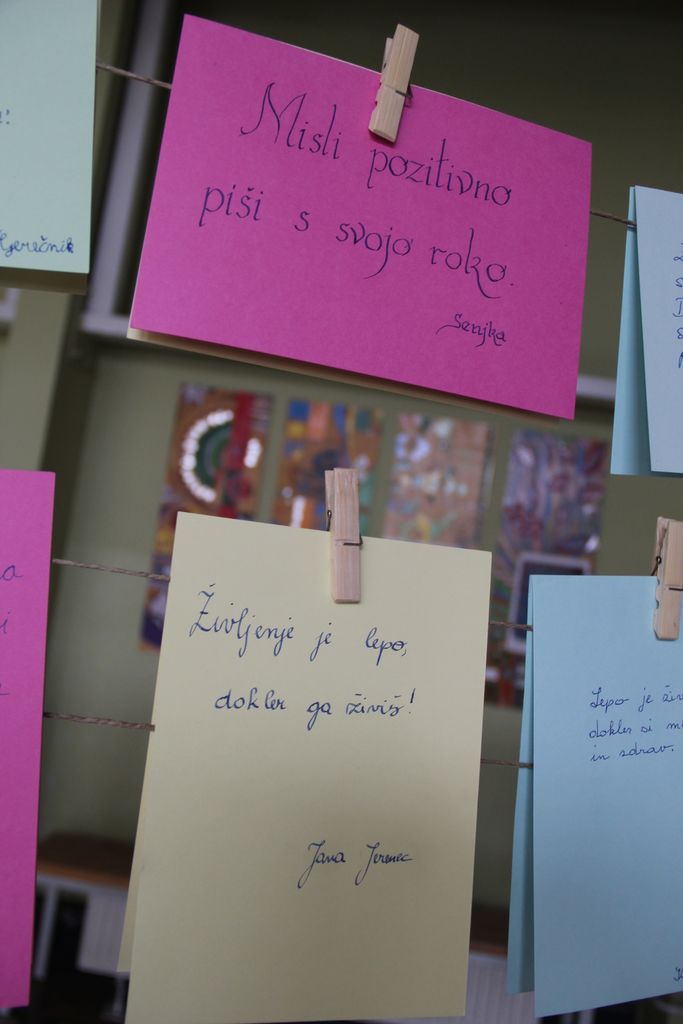 gerečnik
Misli pozitivno
piši s svojo roko.
Senjka
Življenje je lepo,
dokler ga živiš!
Jana Jeremec
Lepo je živ
dokler si ml
in zdrav.